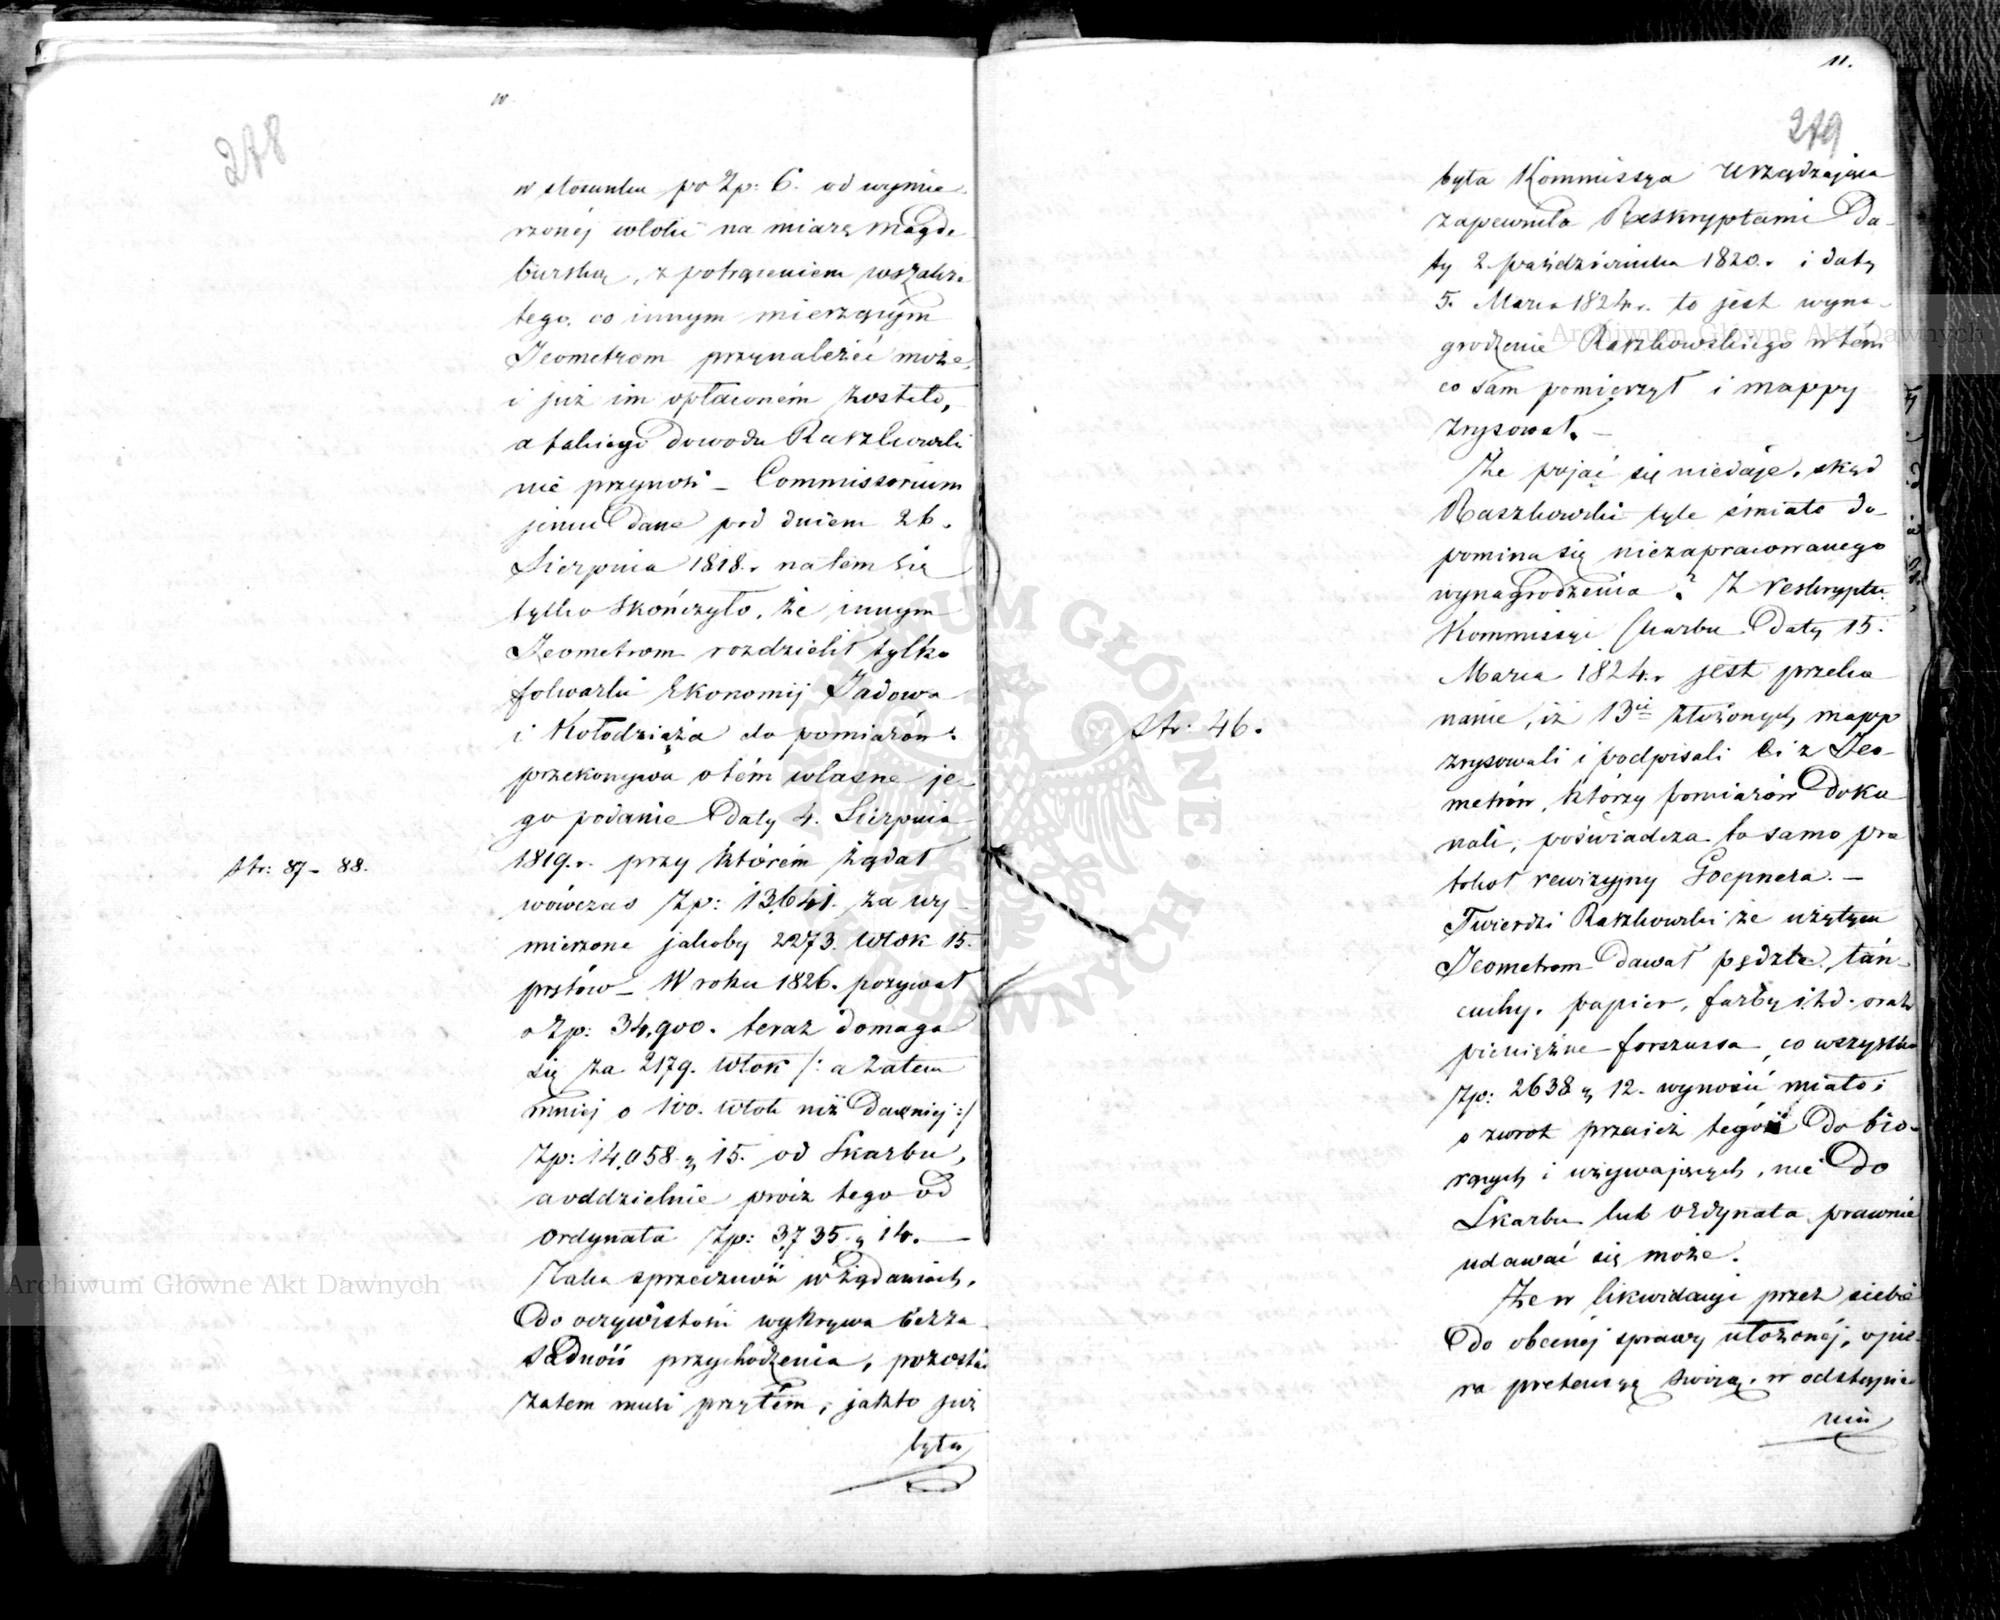 10
278
w stosunku po Zp: 6. od wymie
rzonéj włoki na miarę Magde
burską, z potrąceniem wszakże
tego, co innym mierzącym
Jeometrom przynależéć może,
i już im opłaconém zostało,
a takiego dowodu Raszkowski
nie przynosi – Commissorium
jemu dane pod dniem 26.
Sierpnia 1818.r na tem się
tylko skończyło, że innym
Jeometrom rozdzielił tylko
folwarki Ekonomij Jadowa
i Kołodziąża do pomiarów:
przekonywa o tém własne je-
go podanie daty 4. Sierpnia
str: 87 – 88.
1819.r. przy którém żądał
wówczas Zp: 13,641. za wy-
mierzone jakoby 2273. włok 15.
prętów – W roku 1826. pozywał
o Zp: 34,900. teraz domaga
się za 2179. włok /: a zatem
mniej o 100. włok niż dawniej :/
Zp: 14,058. g 15. od Skarbu,
a oddzielnie prócz tego od
Ordynata Zp: 3,735. g 14. —
Taka sprzeczność w żądaniach,
do oczywistości wykrywa bezza-
sadność przychodzenia, pozostać
zatem musi przytém, jak to już
była
11.
279
była Kommissya Urządzająca
zapewniła Reskryptami da-
ty 2. października 1820.r i daty
5. Marca 1824.r. to jest wyna-
grodzenie Raszkowskiego w tém
co sam pomierzył i mappy
zrysował. –
Że pojąć się niedaje, skąd
Raszkowski tyle śmiało do-
pomina się niezapracowanego
wynagrodzenia? Z reskryptu
Kommissyi Skarbu daty 15.
Marca 1824.r jest przeko
str: 46.
nanie, iż 13ie złożonych mapp
zrysowali i podpisali ci z Jeo-
metrów, którzy pomiarów doko
nali, poświadcza to samo pro
tokoł rewizyjny Goepnera. –
Twierdzi Raszkowski że użytym
Jeometrom dawał pędzle, łań-
cuchy, papier, farby itd. oraz
pieniężne forszussa, co wszystko
Zp: 2638 g 12. wynosić miało;
o zwrot przecież tegoż do bio-
rących i używających, nie do
Skarbu lub Ordynata prawnie
udawać się może.
Że w likwidacyi przez siebie
do obecnéj sprawy ułożonéj, opie-
ra pretensyą swoią, w odstąpie
niu
Archiwum Główne Akt Dawnych
Archiwum Główne Akt Dawnych
ARCHIWUM GŁÓWNE AKT DAWNYCH